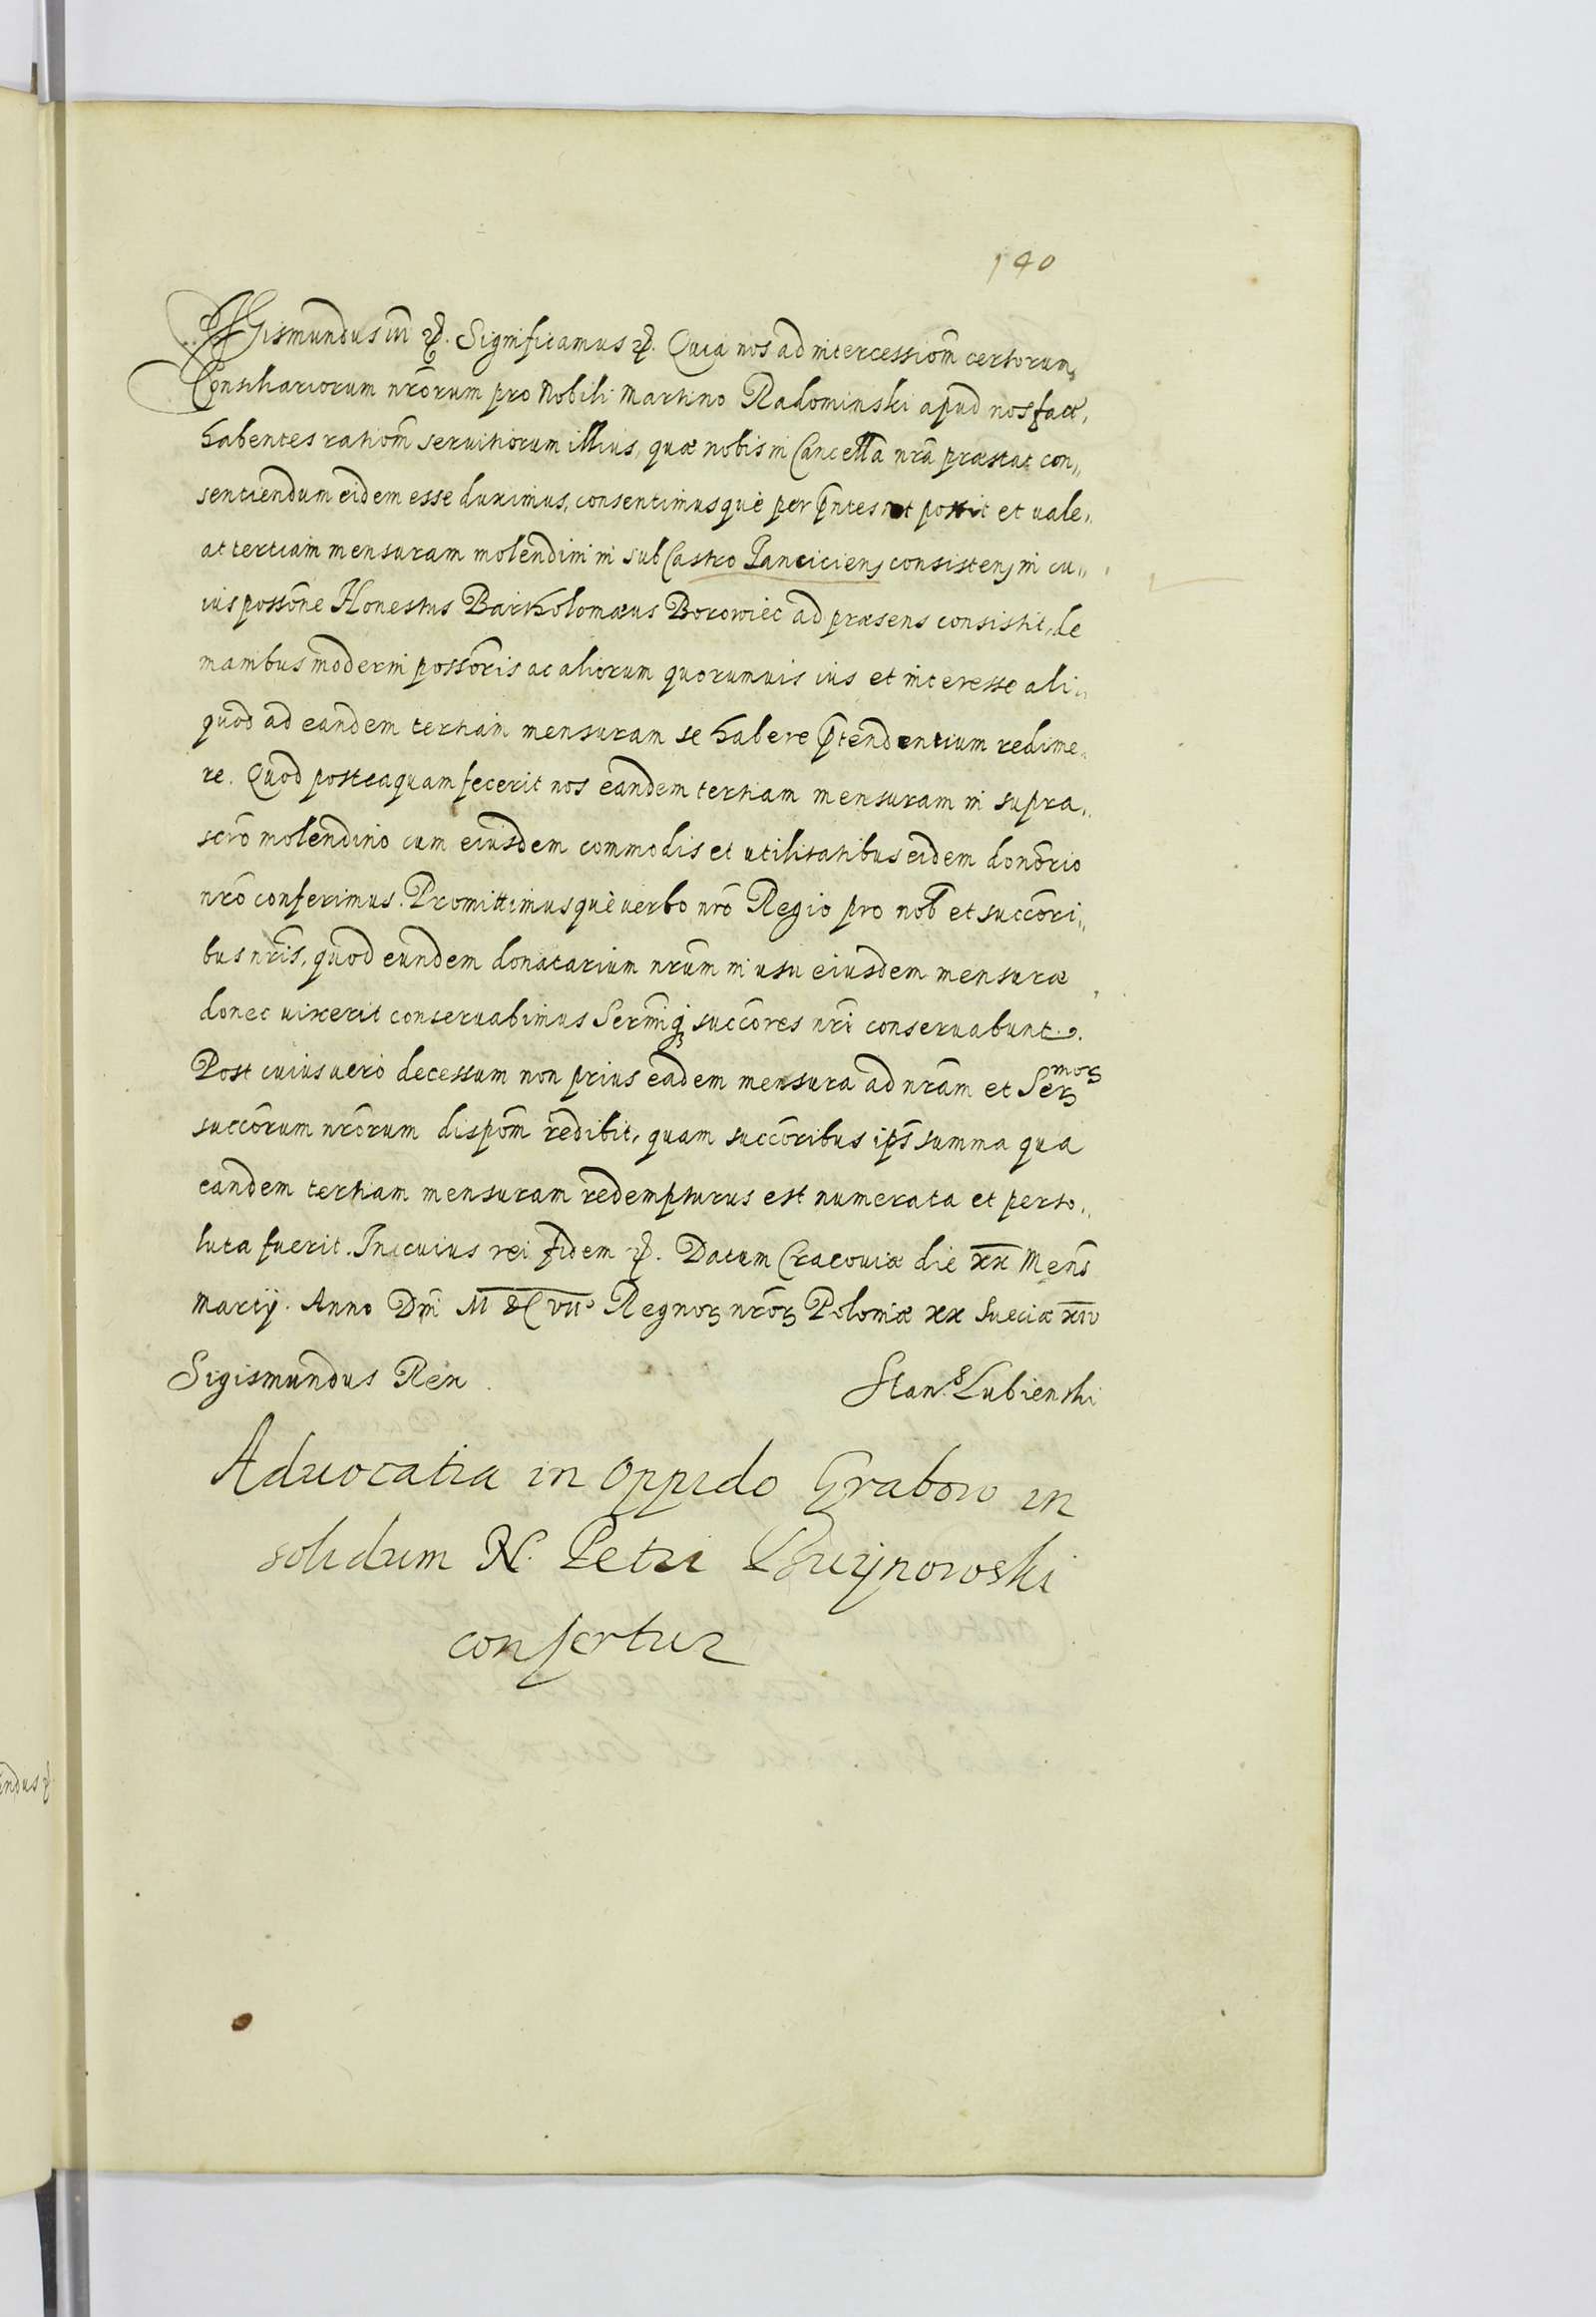 140
Sigismundus III etc. Significamus etc. Quia nos ad intercessiom̃ certorum
Consiliariorum nr̃orum pro Nobili Martino Radominski apud nos fact,
habentes ratiom̃ seruitiorum illius, quæ nobis in Cancella nr̃a præstat con„
sentiendum eidem esse duximus, consentimusquè per p̃ntes ut possit et uale„
at tertiam mensuram molendini in sub Castro Lanciciens consistens, in cu„
ius possõne Honestus Bartholomæus Borowiec ad præsens consistit, de
manibus moderni possõris ac aliorum quorumuis ius et interesse ali„
quod ad eandem tertiam mensuram se habere p̃tendentium redime„
re. Quod posteaquam fecerit nos eandem tertiam mensuram in supra„
scr̃o molendino cum eiusdem commodis et utilitatibus eidem donõrio
nr̃o conferimus. Promittimusquè uerbo nr̃o Regio pro nob̃ et succõri„
bus nr̃is, quod eundem donatarium nr̃um in usu eiusdem mensuræ
donec uixerit conseruabimus Serm̃iq succõres nr̃i conseruabunt.
Post cuius uero decessum non prius eadem mensura ad nr̃am et Sermoꝝ
succõrum nr̃orum dispom̃ redibit, quam succõribus ips̃ summa qua
eandem tertiam mensuram redempturus est numerata et perso„
luta fuerit. In cuius rei fidem etc. Datum Cracouiæ die xx Mens̃
Martij. Anno Dn̄i M DC VII° Regnoꝝ nr̃oꝝ Poloniæ xx Sueciæ xiv
Sigismundus Rex
Stans Lubienski
Aduocatia in oppido Grabow in
solidum N. Petri
confertur